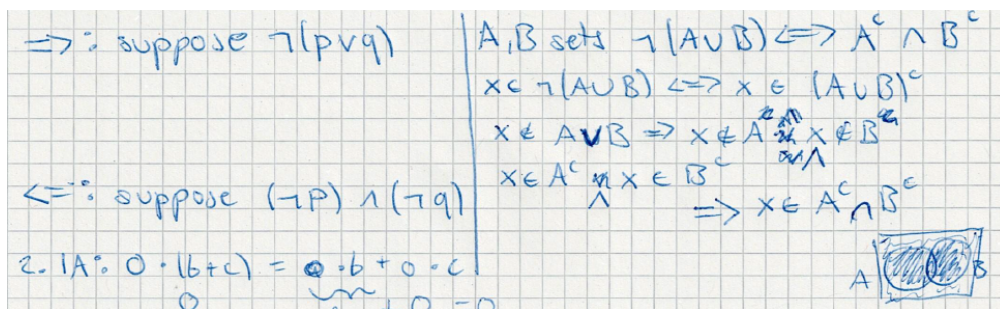 =>: suppose ¬(p∨q)
<=: suppose (¬p) ∧ (¬q)
2. IA: 0 · (b+c) = 0 · b + 0 · c
0 + 0 = 0
A, B sets ¬(A∪B) <=> Aᶜ ∩ Bᶜ
x ∈ ¬(A∪B) <=> x ∈ (A∪B)ᶜ
x ∉ A∪B => x ∉ A ∧ x ∉ B
x ∈ Aᶜ ∧ x ∈ Bᶜ
=> x ∈ Aᶜ ∩ Bᶜ
A B